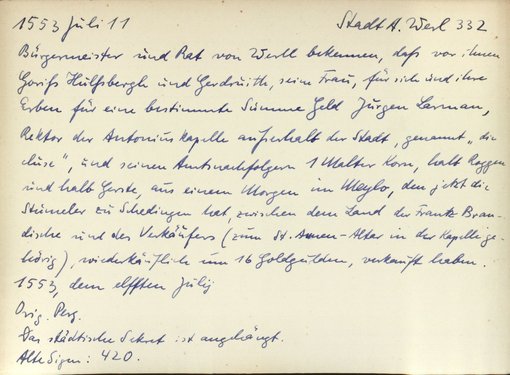 1553 Juli 11 Stadt A. Werl 332
Bürgermeister und Rat von Werll bekennen, dass vor ihnen
Goriss Hülfsbergh und Gerdruith, seine Frau, für sich und ihre
Erben für eine bestimmte Summe Geld Jürgen Larman,
Rektor der Antoniuskapelle ausserhalb der Stadt, genannt „die
cluse", und seinen Amtsnachfolgern 1 Malter Korn, halb Roggen
und halb Gerste, aus einem Morgen im Meylo, den jetzt die
Stümeler zu Schedingen hat, zwischen dem Land der Frantz Bran-
dische und des Verkäufers (zum St. Annen-Altar in der Kapelle ge-
hörig), wiederkäuflich um 16 Goldgulden, verkauft haben.
1553, dem elfften Julij
Orig. Perg.
Das städtische Sekret ist angehängt.
Alte Sign: 420.